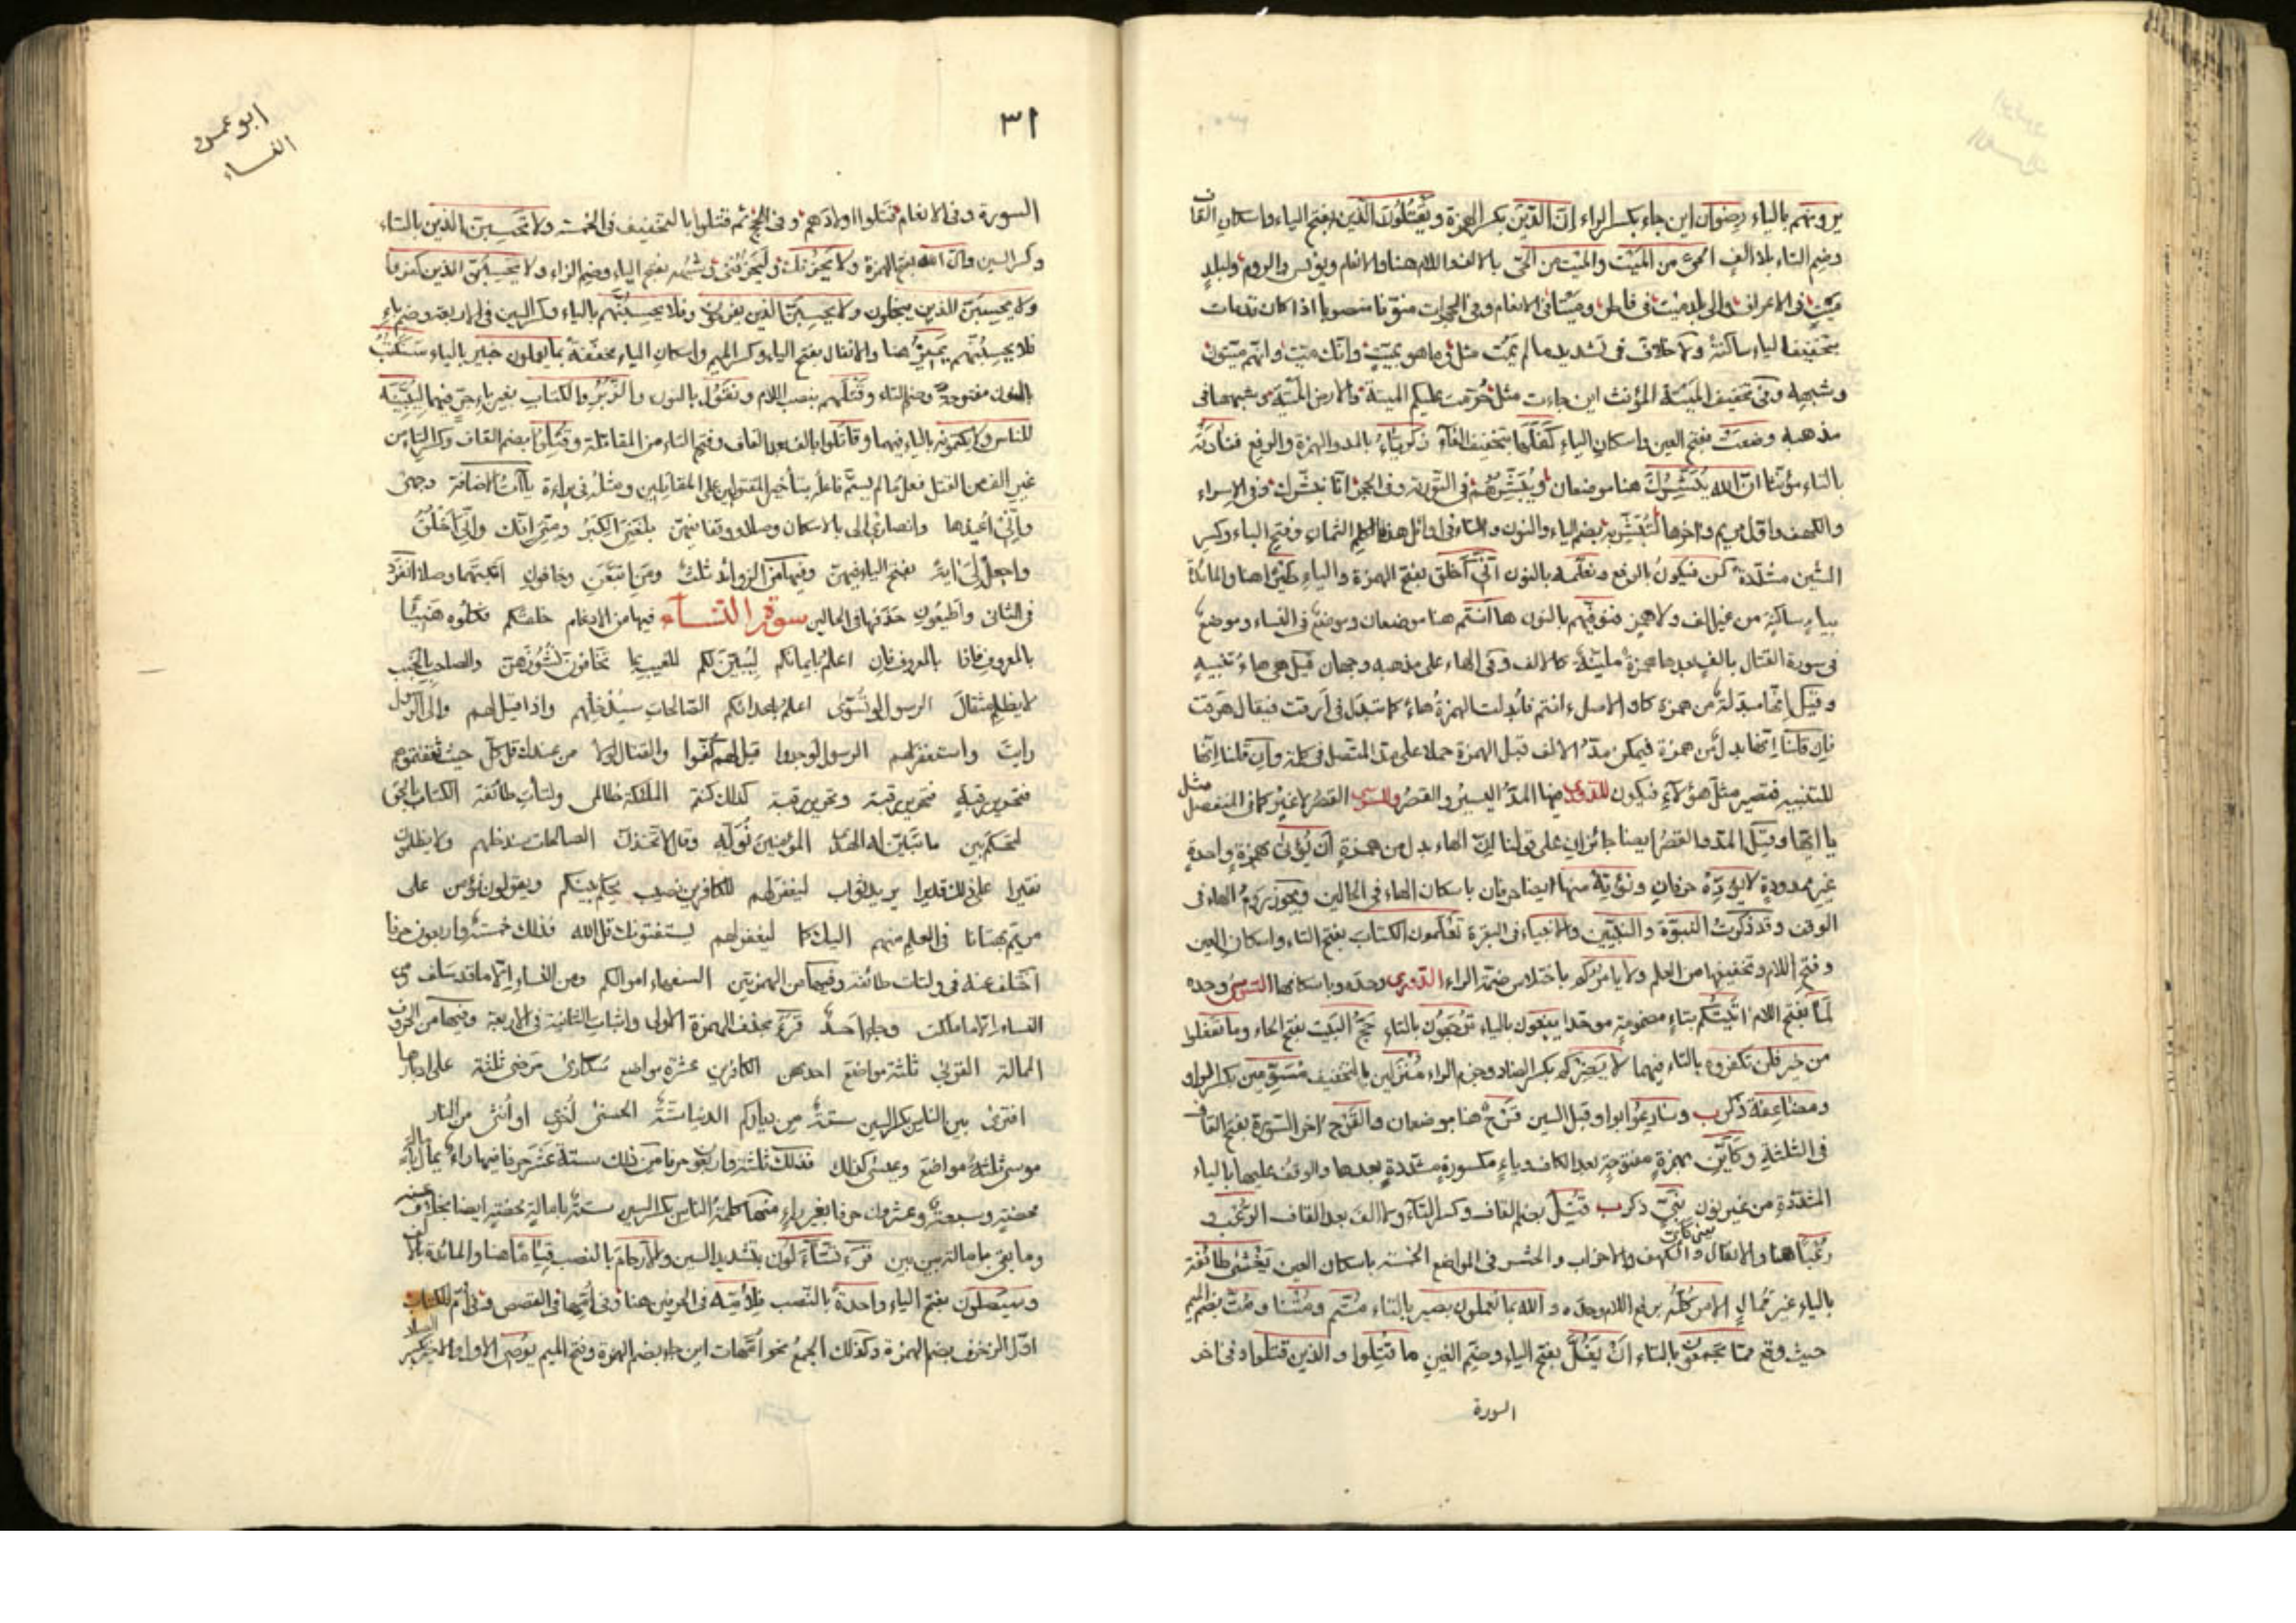 يرونهم بالياء رضوان اين جاء بكسر الراء انّ الدّين بكسر الهمزة ويقتلون الذين بفتح الياء واسكان القاف
وضم التاء بلا الف الحىّ من الميْت والميْت من الحىّ بلا الف واللام هنا والانعام ويونس والروم ولبلدٍ
ميْتٍ فى الاعراف والى بلد ميْت فى فاطر وميْتا فى الانعام وفى الحجرات منوّنا منصوبا اذا كان قد مات
بتخفيف الياء ساكنة ولا خلاف فى تشديد ما لم يمت مثل وما هو بميّت وانّك ميّت وانّهم ميّتون
وشبهه وفى تخفيف الميتة المؤنث اين جاءت مثل حرّمت عليكم الميتة والارض الميتة وشبههما فى
مذهبه وضعتْ بفتح العين واسكان التاء كفلها بتخفيف الفاء زكرياءُ بالمد والهمزة والرفع فنادته
بالتاء مؤنثا انّ الله يُبَشّرك هنا موضعان ويُبشّرهم فى التوبة وفى الحجر انّا نبشّرك وفى الاسراء
والكهف واول مريم وآخرها لتُبشّر به بضم الياء والنون والتاء فى اوائل هذه الكلم الثمان وفتح الباء وكسر
الشين مشدّدة كن فيكونُ بالرفع ونعلّمه بالنون انّى اخلق بفتح الهمزة والياء طيرا هنا والمائدة
بياءٍ ساكنةٍ من غير الف ولا همز فنوفّيهم بالنون ها انتم هنا موضعان وموضع فى النساء وموضع
فى سورة القتال بالفٍ بعدها همزة ملينة كالالف وفى الهاء على مذهبه وجهان قيل هى هاء تنبيهٍ
وقيل انّها مبدلة من همزة كان الاصل ءانتم فابدلت الهمزة هاءً كما تبدل فى ارقت فيقال هرقت
فان قلنا انّها بدل من همزة فيمكن مدّ الالف قبل الهمزة حملا على مدّ المتصل فى كلمة وان قلنا انّها
للتنبيه فتصير مثل هؤلاء فيكون للدورى فيها المدّ اليسير والقصر وللسوسى القصر لا غير كما فى المنفصل مثل
يا ايّها وقيل المد والقصر ايضا جائزان على قولنا انّ الهاء بدل من همزة ان يؤتى بهمزة واحدة
غير ممدودة لا يؤدّهْ حرفان ونؤتهْ منها ايضا حرفان باسكان الهاء فى الحالين ويجوز روم الهاء فى
الوقف وقد ذكرت النبوّة والنبيّين والانبياء فى البقرة تَعْلَمون الكتاب بفتح التاء واسكان العين
وفتح اللام وتخفيفها من العلم ولا يامركم باختلاس ضمّة الراء الدورى وحده وباسكانها السوسى وحده
لَما بفتح اللام اتيتُكم بتاءٍ مضمومةٍ موحّدا يبغون بالياء ترجعون بالتاء حَجّ البيت بفتح الحاء وما تفعلوا
من خير فلن تكفروه بالتاء فيهما لا يضرْكم بكسر الضاد وجزم الراء مُنْزَلين بالتخفيف مسوِّمين بكسر الواو
ومضاعفة ذكرت وسارعوا بواو قبل السين قَرْح هنا موضعان والقَرْح آخر السورة بفتح القاف
فى الثلثة وكأيّن بهمزة مفتوحة بعد الكاف وياء مكسورة مشدّدة بعدها والوقف عليها بالياء
المشدّدة من غير نون نبىّ ذكرت قُتِل بضم القاف وكسر التاء ولا الف بعد القاف الرعْب و
رعْبا هنا والانفال والكهف والاحزاب والحشر فى المواضع الخمسة باسكان العين يغشى طائفة
بالياء غير مُمالٍ الامر كلّه برفع اللام وحده والله بما تعملون بصير بالتاء مُتّم ومُتنا ومُتّ بضم الميم
حيث وقع ممّا تجمعون بالتاء ان يَغُلّ بفتح الياء وضم الغين ما قتلوا والذين قتلوا وفى آخر
السورة
٣١
ابو عمرو
النساء
السورة وفى الانعام قتلوا اولادهم وفى الحج ثم قتلوا بالتخفيف فى الخمسة ولا تحسبنّ الذين بالتاء
وكسر السين وانّ الله بفتح الهمزة ولا يَحْزُنك وليَحْزُننى وشبهه بفتح الياء وضم الزاء ولا يحسبنّ الذين كفروا
ولا يحسبنّ الذين يبخلون ولا يحسبنّ الذين يفرحون فلا يحسبنّهم بالياء وكسر السين فى الاربعة وضم باءِ
فلا يحسبُنّهم يَمِيز هنا والانفال بفتح الياء وكسر الميم واسكان الياء مخفّفة بما يعملون خبير بالياء سنكتب
بالنون مفتوحة وضم التاء وقتلَهم بنصب اللام ونقول بالنون والزبر والكتاب بغير باءِ جرّ فيهما ليبيّننّه
للناس ولا يكتمونه بالياء فيهما وقاتلوا بالف بعد القاف وفتح التاء من المقاتلة وقُتِلوا بضم القاف وكسر التاء من
غير الف من القتل فعل ما لم يسمّ فاعله بتأخير المقتولين على المقاتلين ومثله فى براءة ياآت الاضافة وجهى
وانّى اعيذها وانصارى الى بالاسكان وصلا ووقفا فيهنّ بلغنى الكبر ومنّى انّك وانّى اخلق
واجعل لى آية بفتح الياء فيهنّ وفيها من الزوائد ثلث ومن اتبعن وخافون اثبتهما وصلا انفرد
فى الثانى واطيعون حذفها فى الحالين سورة النساء فيها من الادغام خلقكم فكلوه هنيئا
بالمعروف فاذا بالمعروف فان اعلم بايمانكم ليبيّن لكم للغيب بما تخافون نشوزهنّ والصاحب بالجنب
لا يظلم مثقال الرسول لو تسوّى اعلم باعدائكم الصالحات سندخلهم واذا قيل لهم والى الرسول
رايت واستغفر لهم الرسول لوجدوا قيل لهم كفّوا والقتال لولا من عندك قل كلّ حيث ثقفتموهم
فتحرير رقبة فتحرير رقبة وتحرير رقبة كذلك كنتم الملئكة ظالمى ولتأت طائفة الكتاب بالحقّ
لتحكم بين ما تبيّن له الهدى المؤمنين نولّه وقال لاتّخذنّ الصالحات سندخلهم ولا يظلمون
نقيرا على ذلك قديرا يريد ثواب ليغفر لهم للكافرين نصيب يحكم بينكم ويقولون نؤمن على
مريم بهتانا فى العلم منهم اليك كما ليغفر لهم يستفتونك قل الله فذلك خمسة واربعون حرفا
اختلف عنه فى ولتات طائفة وفيها من الهمزتين السفهاء اموالكم ومن النساء الّا ما قد سلف
النساء الّا ما ملكت وجاء احد قرء بحذف الهمزة الاولى واثبات الثانية فى الاربعة وفيها من الحروف
الممالة القربى ثلثة مواضع احديهن الكافرين عشرة مواضع سكارى مرضى ثلثة على ادبارها
افترى بين الناس بكسر السين ستة من دياركم الدنيا ستة الحسنى اخرى او انثى من النار
موسى ثلثة مواضع وعيسى كذلك فذلك ثلثة واربعون حرفا من ذلك ستة عشر حرفا فيها راء يمال
محضة وسبعة وعشرون حرفا بغير راء منها كلمة الناس بكسر السين ستة بامالة محضة ايضا بخلاف عنه
وما بقى بامالة بين بين قرء تسّاءلون بتشديد السين والارحام بالنصب قياما هنا والمائدة بالالف
وسيَصلون بفتح الياء واحدةً بالنصب فلأمّه فى الحرفين هنا وفى امّها فى القصص وفى امّ الكتاب
اول الزخرف بضم الهمزة وكذلك الجمع نحو امّهات اين جاء بضم الهمزة وفتح الميم يوصى الاول والاخير بكسر